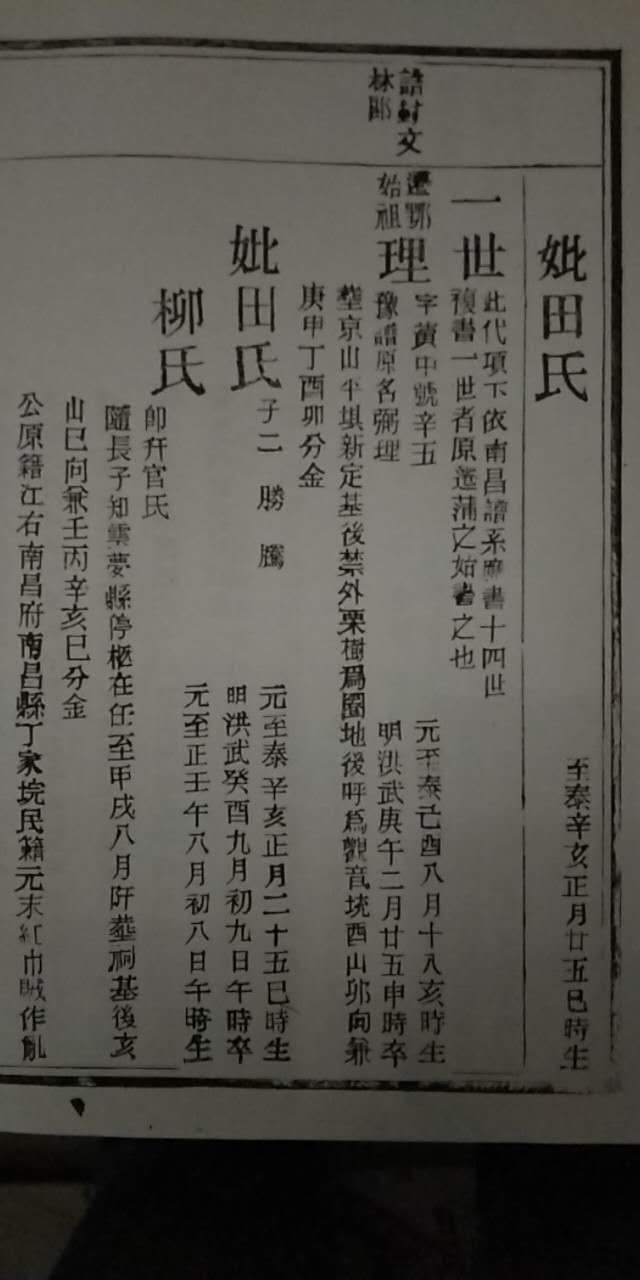 妣田氏
至泰辛亥正月廿五巳時生
一世
此代項下依南昌譜系應書十四世
複書一世者原遷蒲之始書之也
誥封文
林郎
遷鄂
始祖
理
字黃中號辛五
豫譜原名弼理
元至泰己酉八月十八亥時生
明洪武庚午二月廿五申時卒
塟京山平垻新定基後禁外栗樹爲圈地後呼爲觀音垸酉山卯向兼
庚申丁酉卯分金
妣田氏
子二 勝 騰
元至泰辛亥正月二十五巳時生
明洪武癸酉九月初九日午時卒
柳氏
卽幵官氏
元至正壬午八月初八日午時生
隨長子知雲夢縣停柩在任至甲戌八月阡塟祠基後亥
山巳向兼壬丙辛亥巳分金
公原籍江右南昌府南昌縣丁家垸民籍元末紅巾賊作亂